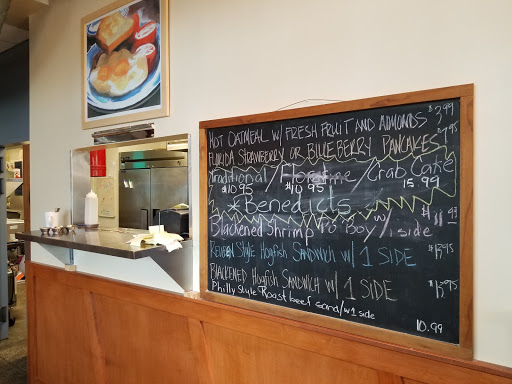 HOT OATMEAL W/ FRESH FRUIT AND ALMONDS $3.99
FLORIDA STRAWBERRY OR BLUEBERRY PANCAKES $7.95
Traditional/Florentine/Crab Cake
$10.95 $10.95 15.99
*Benedicts
Blackened Shrimp Po Boy w/ 1 side $11.93
REUBEN Style Hogfish SANDWICH w/ 1 SIDE $13.95
BLACKENED Hogfish SANDWICH w/ 1 SIDE $13.95
Philly Style Roast beef sand/w1 side
10.99